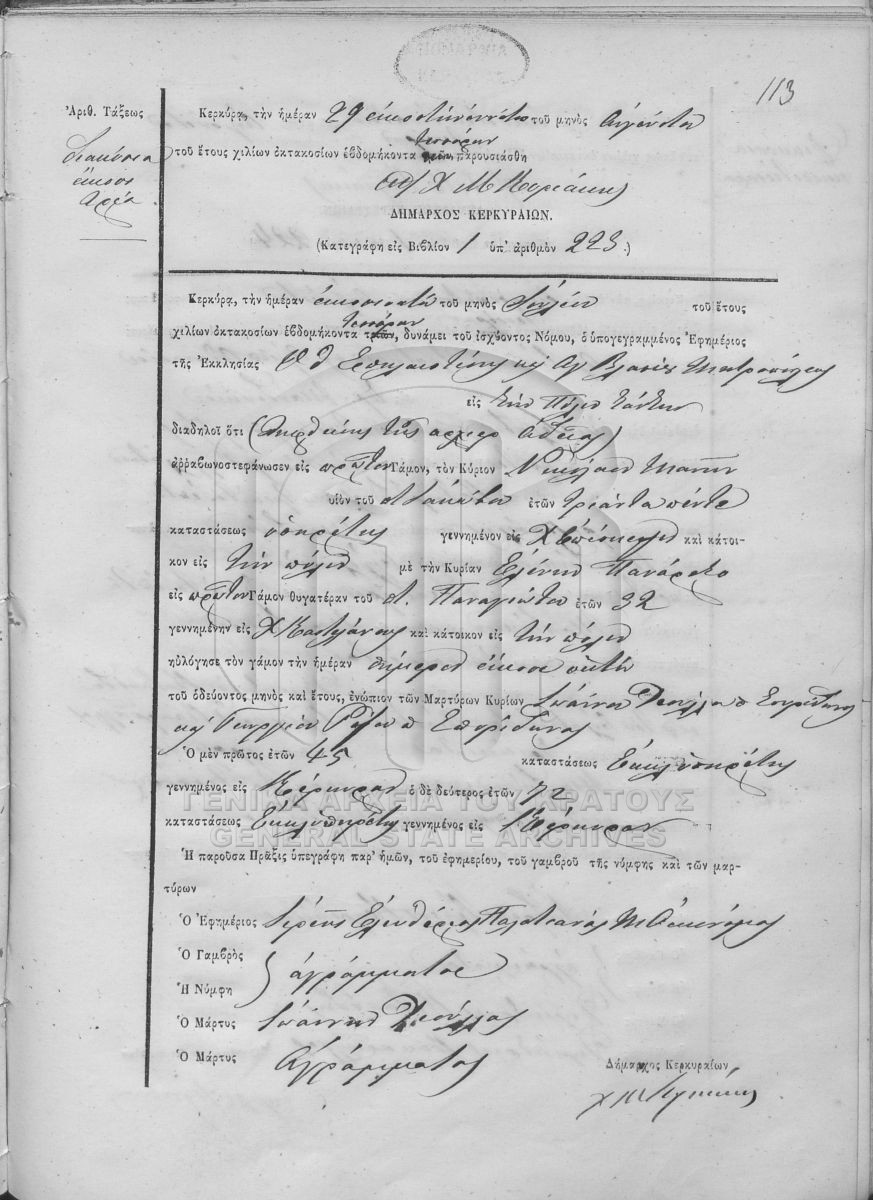 113
Ἀριθ. Τάξεως
διακόσια
εἴκοσι
τρία
Κερκύρᾳ, τὴν ἡμέραν 29 εἰκοστὴν ἐννάτην τοῦ μηνὸς Αὐγούστου
τεσσάρων
τοῦ ἔτους χιλίων ὀκτακοσίων ἑβδομήκοντα τριῶν, παρουσιάσθη
ΔΗΜΑΡΧΟΣ ΚΕΡΚΥΡΑΙΩΝ.
(Κατεγράφη εἰς Βιβλίον 1 ὑπ' ἀριθμὸν 223.)
Κερκύρᾳ, τὴν ἡμέραν τοῦ μηνὸς Ἰουλίου τοῦ ἔτους
τεσσάρων
χιλίων ὀκτακοσίων ἑβδομήκοντα τριῶν, δυνάμει τοῦ ἰσχύοντος Νόμου, ὁ ὑπογεγραμμένος Ἐφημέριος
τῆς Ἐκκλησίας Σπηλαιωτίσης καὶ Ἁγ Βλασίου Μητροπόλεως
εἰς τὴν Πόλιν
διαδηλοῖ ὅτι ( τῆς ἀδείας)
ἀῤῥαβωνοστεφάνωσεν εἰς πρῶτον Γάμον, τὸν Κύριον Νικόλαον
υἱὸν τοῦ ἐτῶν τριάντα πέντε
καταστάσεως ὑπηρέτης γεννημένον εἰς Χ Ἐπίσκεψιν καὶ κάτοι-
κον εἰς τὴν πόλιν μὲ τὴν Κυρίαν Ἑλένην
εἰς πρῶτον Γάμον θυγατέραν τοῦ Παναγιώτου ἐτῶν 32
γεννημένην εἰς Χ Καστελάνους καὶ κάτοικον εἰς τὴν πόλιν
ηὐλόγησε τὸν γάμον τὴν ἡμέραν σήμερον εἴκοσι
τοῦ ὁδεύοντος μηνὸς καὶ ἔτους, ἐνώπιον τῶν Μαρτύρων Κυρίων Ἰωάννου Σπυρίδωνος
καὶ Γεωργίου Σπυρίδωνος
Ὁ μὲν πρῶτος ἐτῶν 45 καταστάσεως
γεννημένος εἰς Κέρκυραν ὁ δὲ δεύτερος ἐτῶν 72
καταστάσεως γεννημένος εἰς Κέρκυραν
ΓΕΝΙΚΑ ΑΡΧΕΙΑ ΤΟΥ ΚΡΑΤΟΥΣ
GENERAL STATE ARCHIVES
Ἡ παροῦσα Πρᾶξις ὑπεγράφη παρ' ἡμῶν, τοῦ ἐφημερίου, τοῦ γαμβροῦ τῆς νύμφης καὶ τῶν μαρ-
τύρων
Ὁ Ἐφημέριος Ἱερεὺς Ἐλευθέριος
Ὁ Γαμβρὸς
ἀγράμματοι
Ἡ Νύμφη
Ὁ Μάρτυς Ἰωάννης
Ὁ Μάρτυς Ἀγράμματος
Δήμαρχος Κερκυραίων